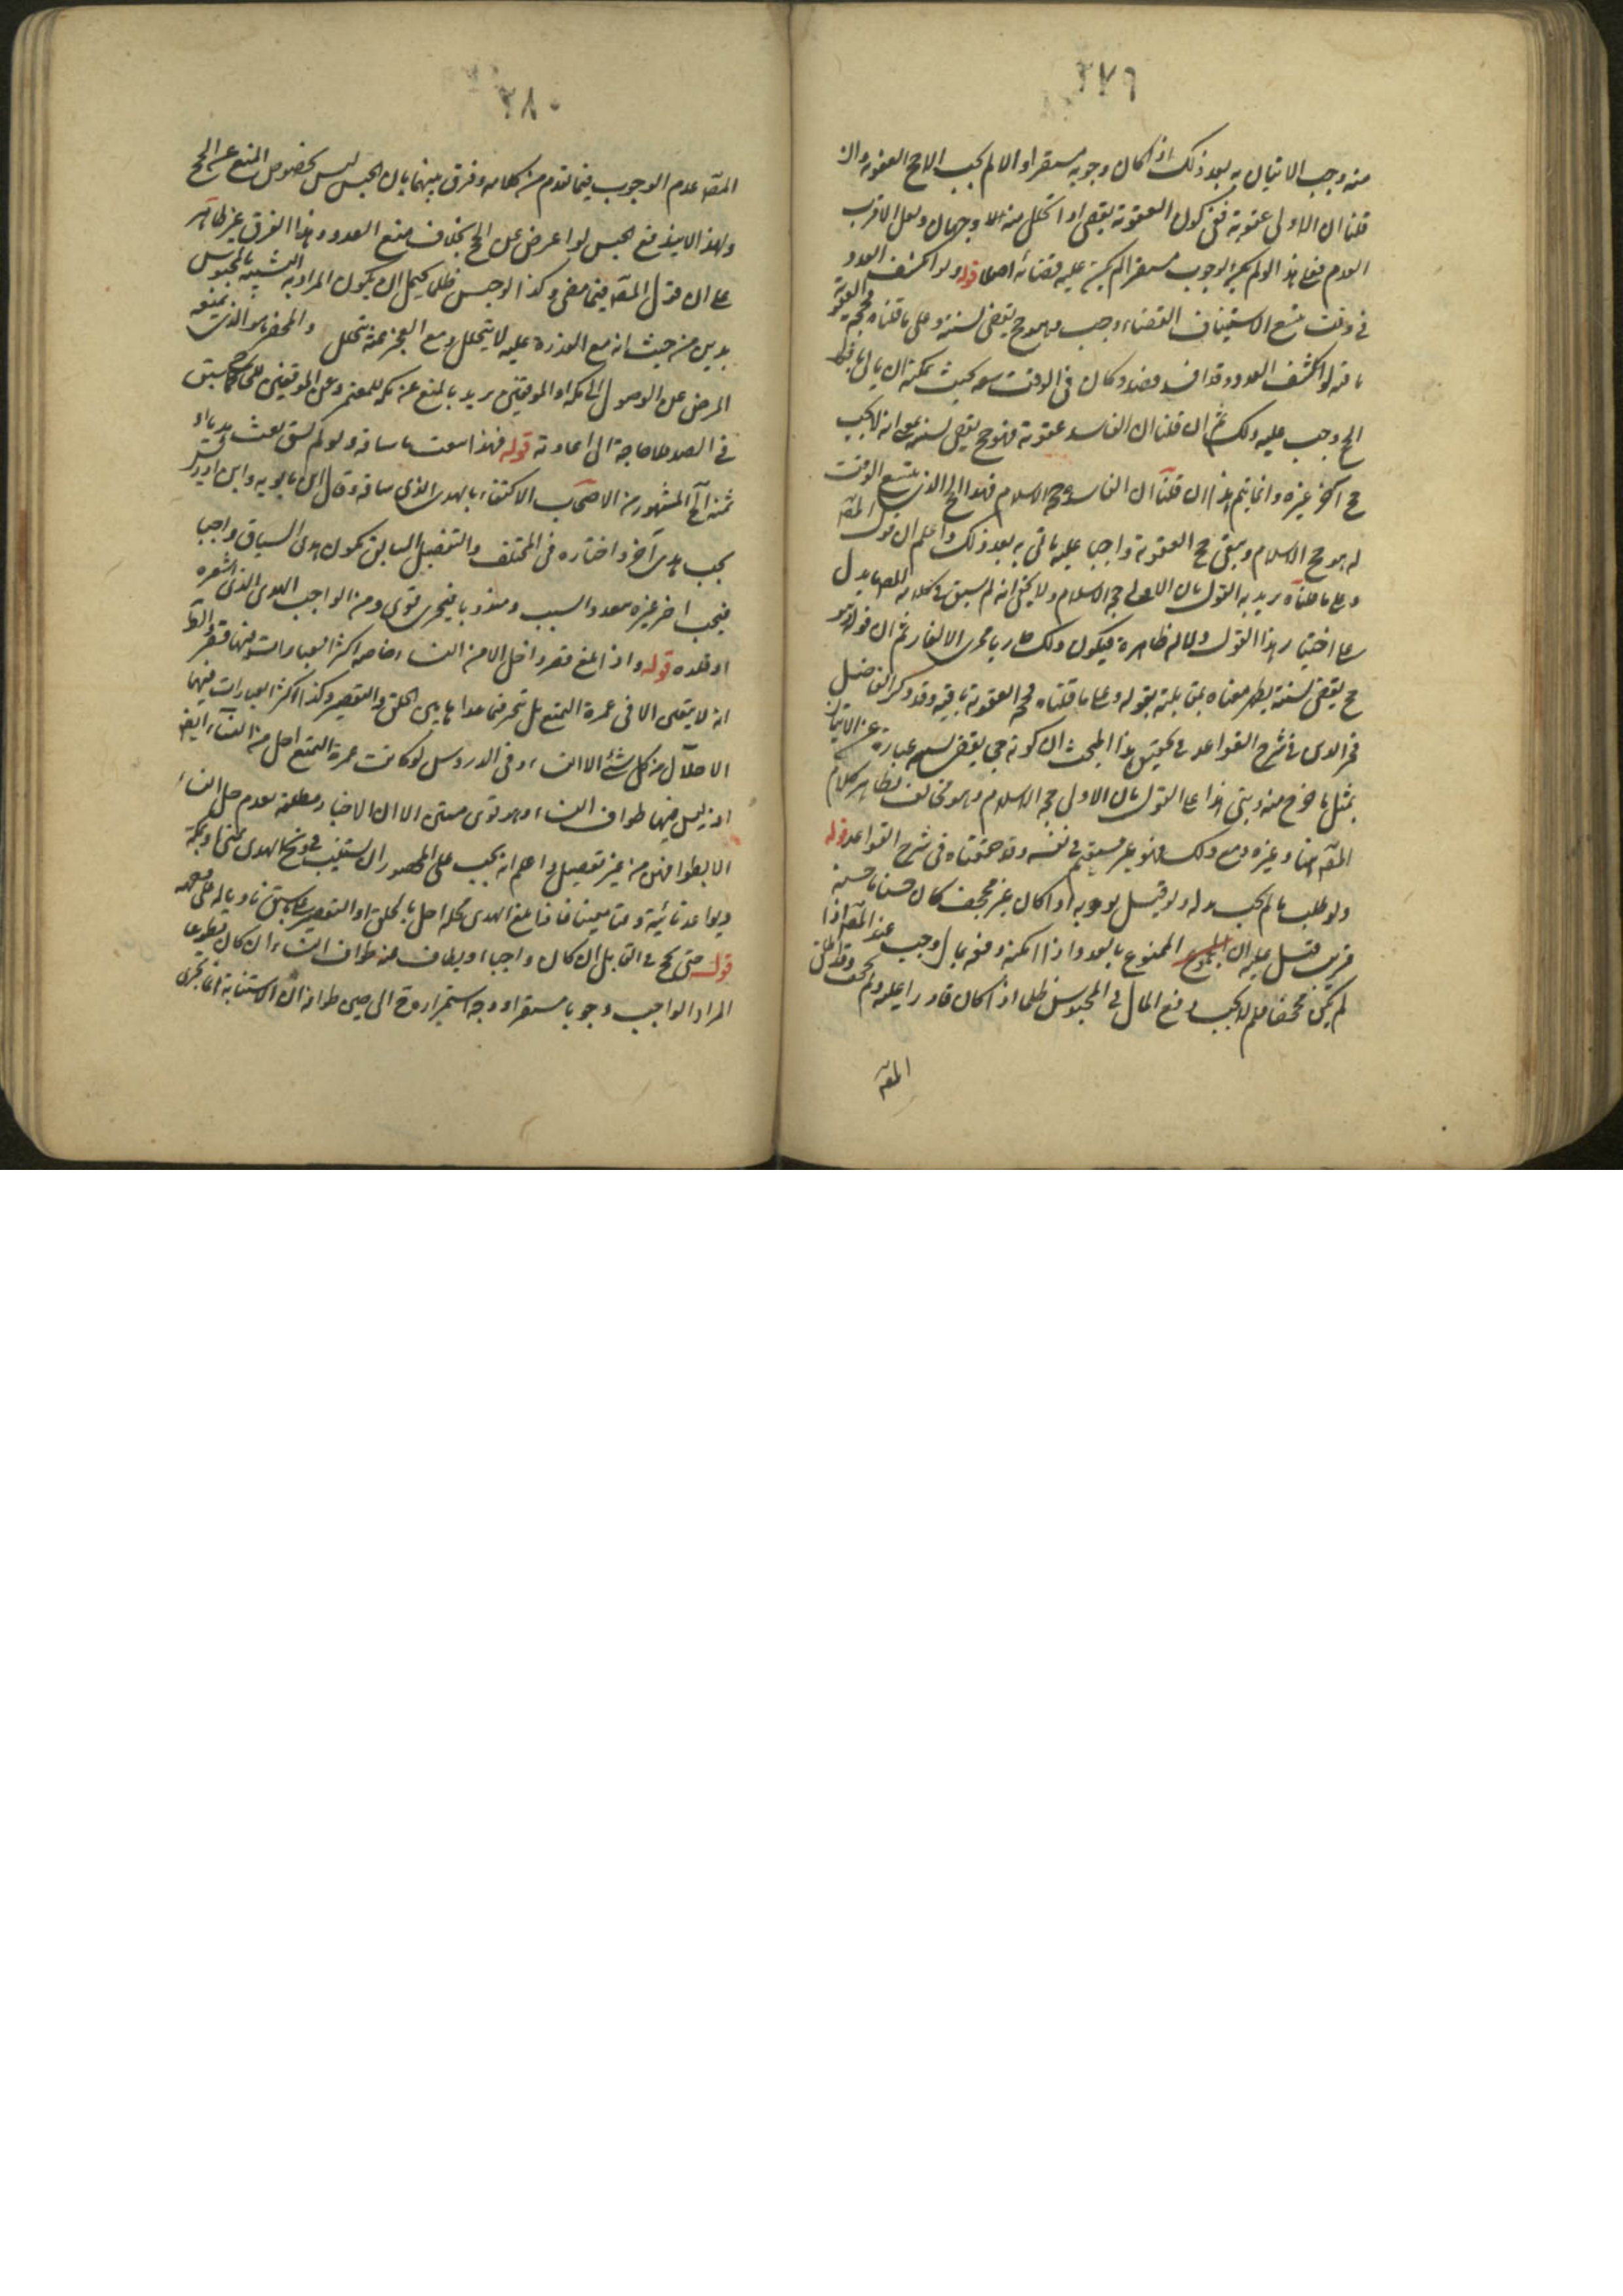 ٢٧٩
منه وجب الاتيان به بعد ذلك اذا كان وجوبه مستقرا والا لم يجب الا حج العقوبة وان
قلنا ان الاولى عقوبة ففي كون العقوبة يقضى اذا تحلل منها وجهان ولعل الاقرب
العدم فعلى هذا لو لم يكن الوجوب مستقرا لم يكن عليه قضاء اصلا قوله ولو انكشف العدو
في وقت يتسع لاستيناف القضاء وجب وهو حج يقضى لسنته وعلى ما قلناه فحجة العقوبة
باقية لو انكشف العدو وقد افسد وكان في الوقت سعة بحيث يمكنه ان ياتي بافعال
الحج وجب عليه ذلك ثم ان قلنا ان الفاسد عقوبة فهو حج يقضى لسنته بمعنى انه لا يجب
حج آخر غيره وانما يتم هذا ان قلنا ان الفاسد حج الاسلام فهذا الحج الذي يتسع الوقت
له هو حج الاسلام ويبقى حج العقوبة واجبا عليه ياتي به بعد ذلك واعلم ان قول المصـ
وعلى ما قلناه يريد به القول بان الاولى حجة الاسلام ولا يخفى انه لم يسبق في كلامه للمصـ ما يدل
على اختيار هذا القول دلالة ظاهرة فيكون ذلك جاريا مجرى الالغاز ثم ان قوله وهو
حج يقضى لسنته يظهر معناه بمقابلته بقوله وعلى ما قلناه فحجة العقوبة باقية وقد ذكر الفاضل
فخر الدين في شرح القواعد في تحقيق هذا المبحث ان كونه حج يقضى لسنته عبارة عن الاتيان
بمثل ما خرج منه وبنى هذا على القول بان الاولى حجة الاسلام وهو مخالف لظاهر كلام
المصـ هنا وغيره ومع ذلك فهو غير مستقيم في نفسه وقد حققناه في شرح القواعد قوله
ولو طلب مالا لم يجب بذله ولو قيل بوجوبه اذا كان غير مجحف كان حسنا ما حسنه
قريب فقيل عليه ان الممنوع بالعدو اذا امكنه دفعه بمال وجب عند المصـ اذا
لم يكن مجحفا فلم لا يجب دفع المال في المحبوس ظلما اذا كان قادرا عليه ولم يجحف وقد اطلق
المصـ
٢٨٠
المصـ عدم الوجوب فيما تقدم من كلامه وفرق بينهما بان الحبس ليس بخصوص المنع من الحج
ولهذا لا يندفع الحبس لو اعرض عن الحج بخلاف منع العدو وهذا الفرق غير ظاهر
على ان قول المصـ فيما مضى وكذا لو حبس ظلما يحتمل ان يكون المراد به التشبيه بالمحبوس
بدين من حيث انه مع القدرة عليه لا يتحلل ومع العجز عنه يتحلل والمحصر هو الذي يمنعه
المرض عن الوصول الى مكة او الموقفين يريد بالمنع عن مكة للمعتمر وعن الموقفين للحاج كما سبق
في الصد فلا حاجة الى اعادته قوله فهذا يبعث ما ساقه ولو لم يسق بعث هديا او
ثمنه آه المشهور من الاصحاب الاكتفاء بالهدي الذي ساقه وقال ابن بابويه وابن ادريس
يجب هدي آخر واختاره في المختلف والتفصيل السابق بكون هدي السياق واجبا
فيجب آخر غيره لتعدد السبب ومندوبا فيجزي قوي ومن الواجب الهدي الذي اشعره
او قلده قوله واذا بلغ قصر واحل الا من النساء خاصة اكثر العبارات فيها قصر والظاهر
انه لا يتعين الا في عمرة التمتع بل يتخير فيما عداها بين الحلق والتقصير وكذا اكثر العبارات فيها
الاحلال من كل شيء الا النساء وفي الدروس لو كانت عمرة التمتع احل من النساء ايضا
اذ ليس فيها طواف النساء وهو قوي متين الا ان الاخبار مطلقة بعدم حل النساء
الا بطوافهن من غير تفصيل واعلم انه يجب على المحصور ان يستنيب في ذبح الهدي بمنى او بمكة
ويواعد نائبه وقتا معينا فاذا بلغ الهدي محله احل بالحلق او التقصير على ما سبق ناويا
قوله حتى يحج في القابل ان كان واجبا ويطاف عنه طواف النساء ان كان تطوعا
المراد الواجب وجوبا مستقرا ووجه استمراره الى حين طوافه ان الاستنابة انما تجزي